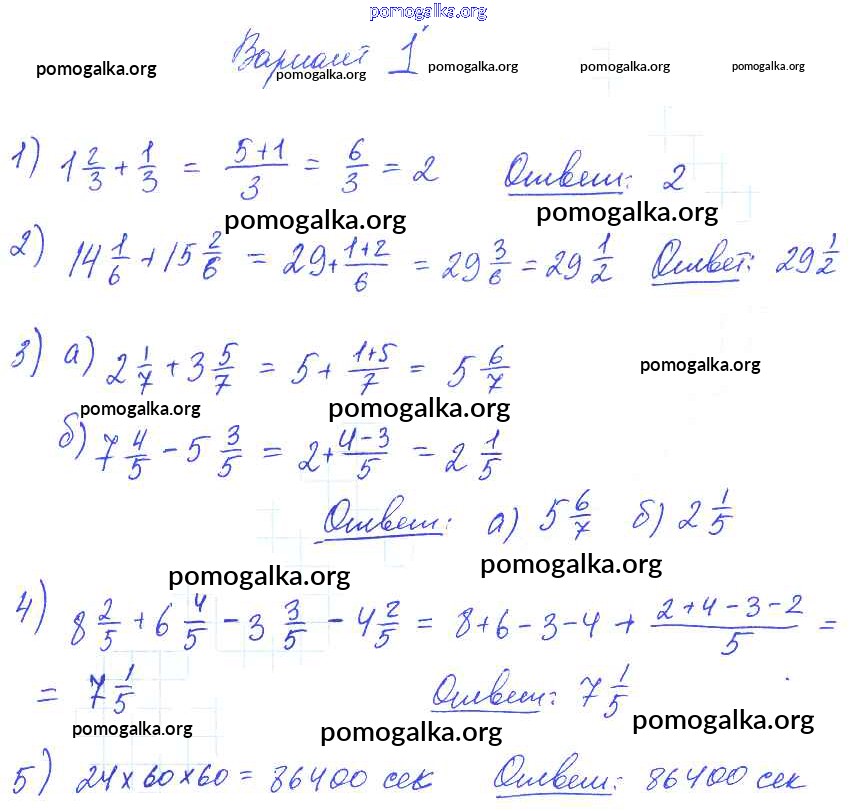 pomogalka.org
Вариант 1
pomogalka.org pomogalka.org pomogalka.org pomogalka.org pomogalka.org
1) 1 2/3 + 1/3 = (5+1)/3 = 6/3 = 2 Ответ: 2
pomogalka.org pomogalka.org
2) 14 1/6 + 15 2/6 = 29 + (1+2)/6 = 29 3/6 = 29 1/2 Ответ: 29 1/2
3) а) 2 1/7 + 3 5/7 = 5 + (1+5)/7 = 5 6/7 pomogalka.org
pomogalka.org pomogalka.org
б) 7 4/5 - 5 3/5 = 2 + (4-3)/5 = 2 1/5
Ответ: а) 5 6/7 б) 2 1/5
pomogalka.org pomogalka.org
4) 8 2/5 + 6 4/5 - 3 3/5 - 4 2/5 = 8+6-3-4 + (2+4-3-2)/5 =
= 7 1/5 Ответ: 7 1/5
pomogalka.org pomogalka.org pomogalka.org
5) 24 x 60 x 60 = 86400 сек Ответ: 86400 сек